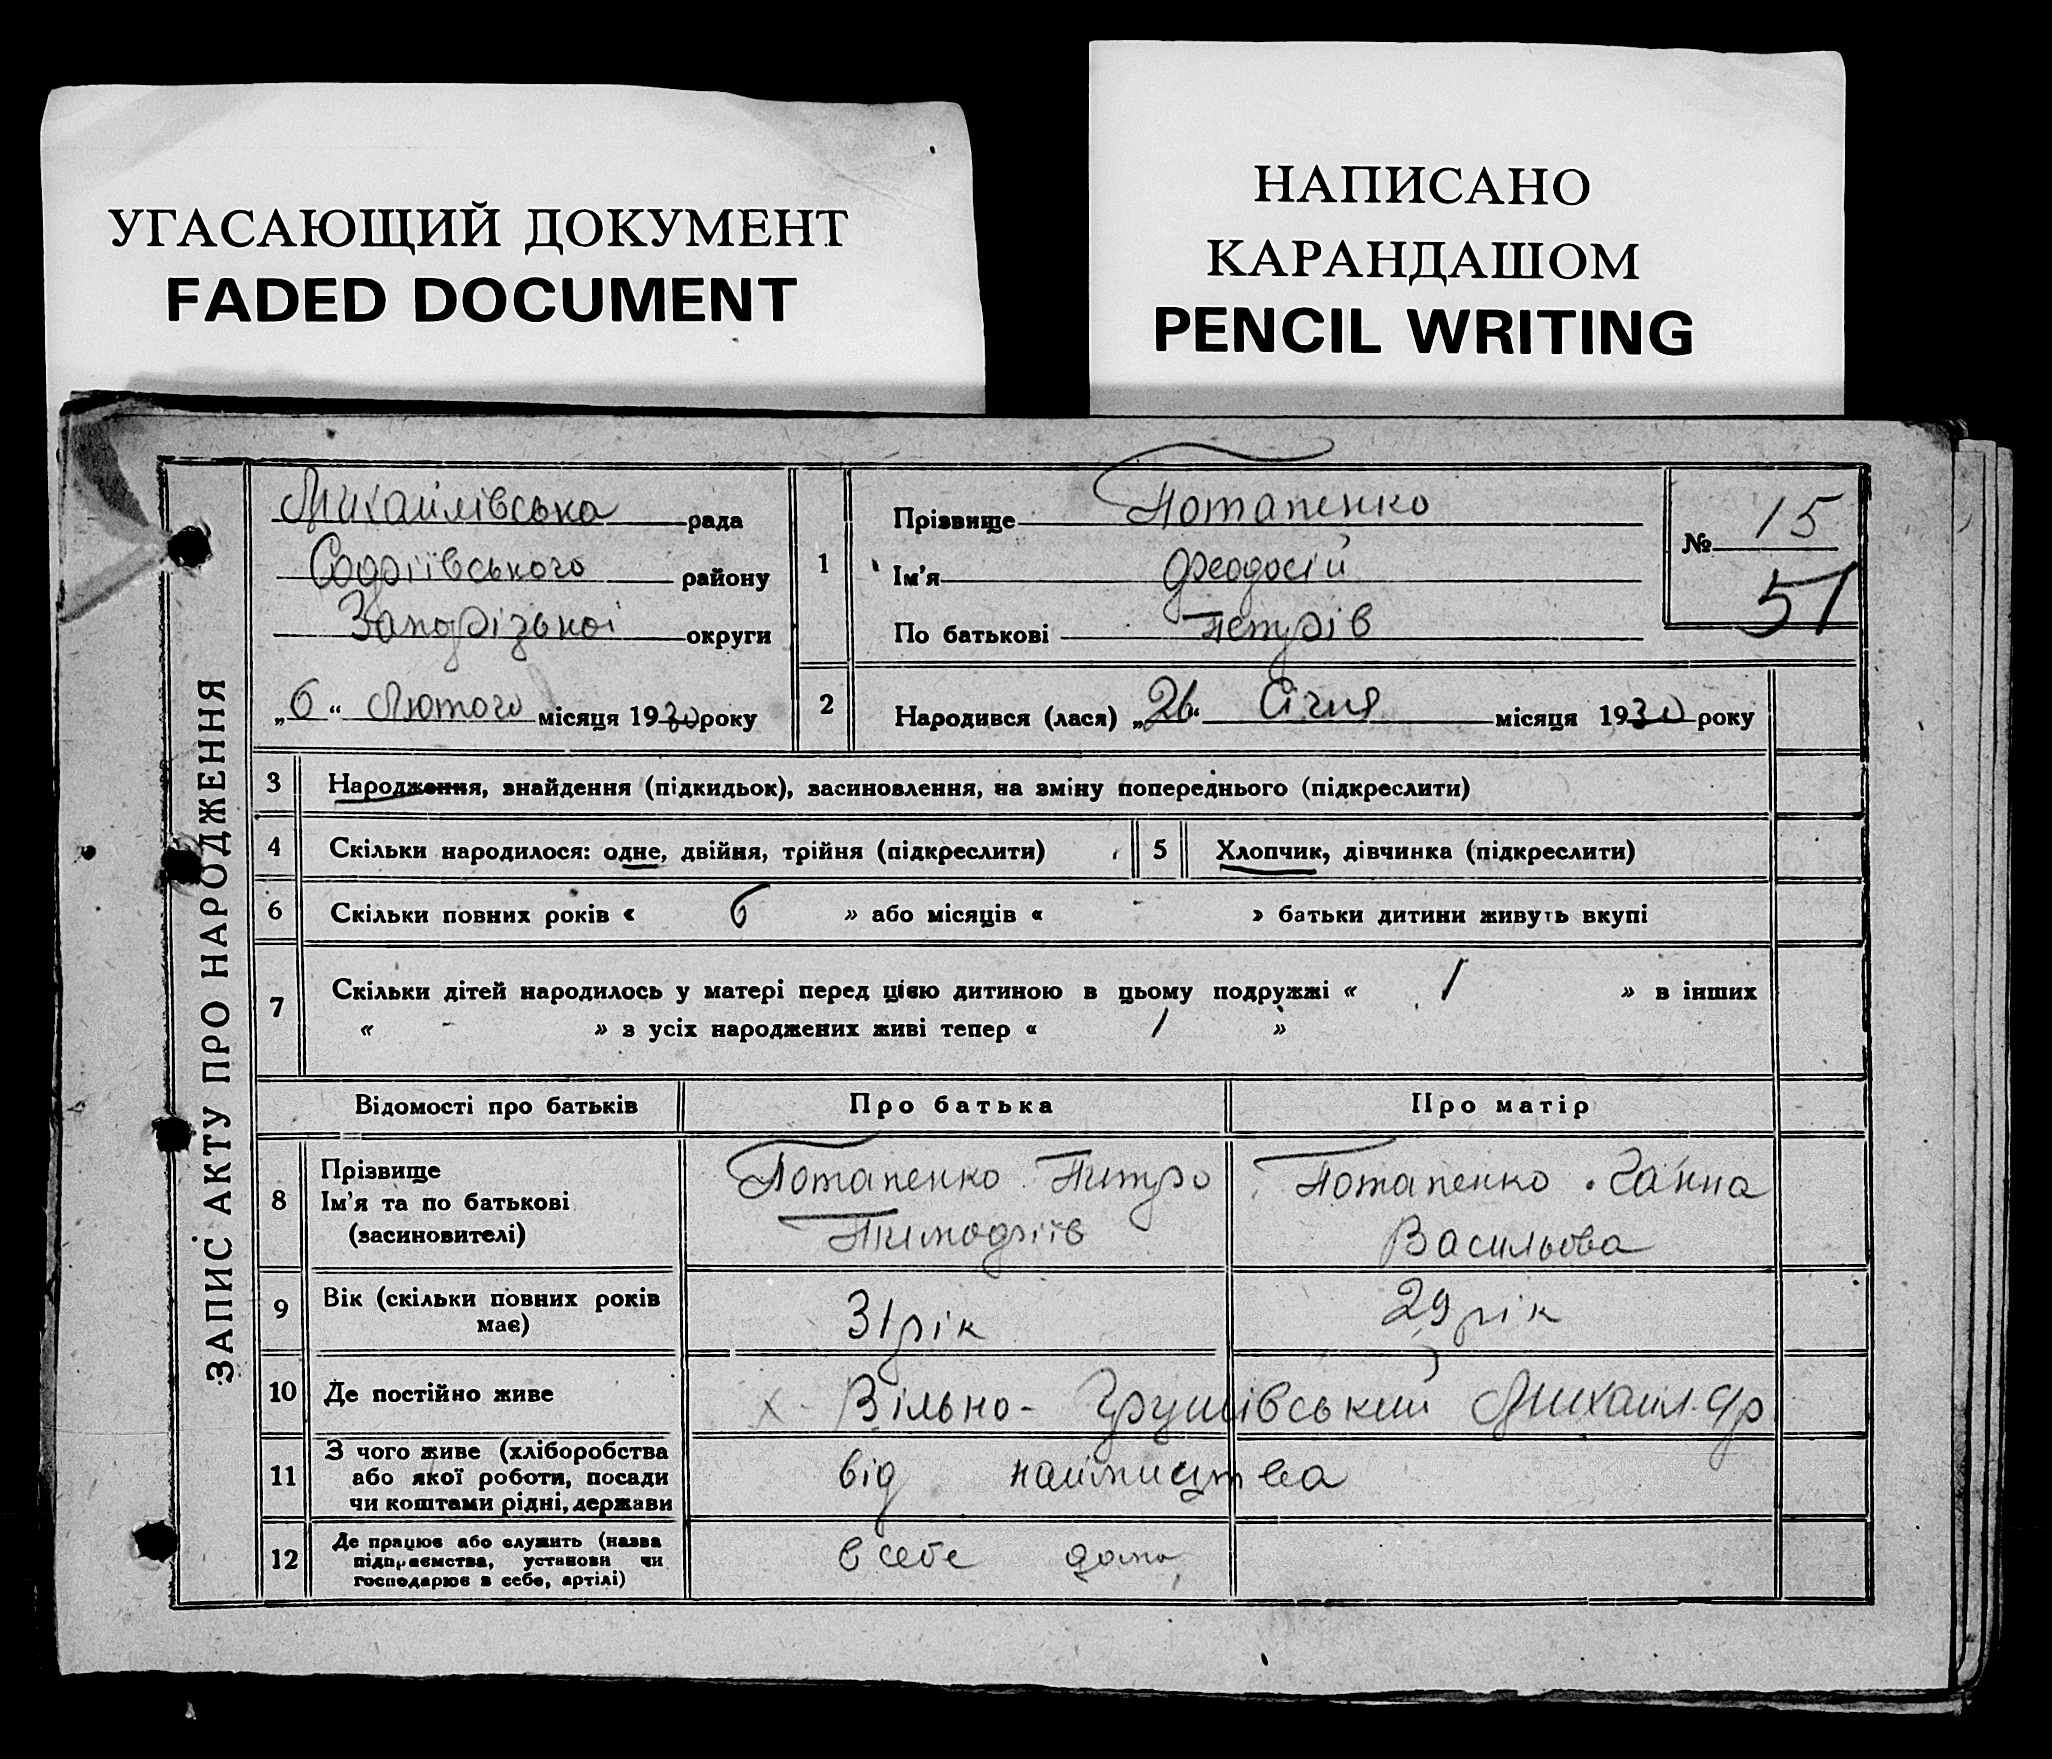 УГАСАЮЩИЙ ДОКУМЕНТ
FADED DOCUMENT
НАПИСАНО
КАРАНДАШОМ
PENCIL WRITING
ЗАПИС АКТУ ПРО НАРОДЖЕННЯ
Михайлівська рада
Софіївського району
Запорізької округи
„6“ Лютого місяця 1930 року
1 Прізвище Потапенко
Ім'я Феодосій
По батькові Петрів
№ 15
51
2 Народився (лася) „26“ Січня місяця 1930 року
3 Народження, знайдення (підкидьок), засиновлення, на зміну попереднього (підкреслити)
4 Скільки народилося: одне, двійня, трійня (підкреслити) 5 Хлопчик, дівчинка (підкреслити)
6 Скільки повних років « 6 » або місяців « - » батьки дитини живуть вкупі
7 Скільки дітей народилось у матері перед цією дитиною в цьому подружжі « 1 » в інших
« - » з усіх народжених живі тепер « 1 »
Відомості про батьків Про батька Про матір
8 Прізвище
Ім'я та по батькові
(засиновителі)
Потапенко Питро
Тимофіїв
Потапенко Ганна
Васильова
9 Вік (скільки повних років
має)
31 рік 29 рік
10 Де постійно живе х- Вільно- Грушівський Михайл.
11 З чого живе (хліборобства
або якої роботи, посади
чи коштами рідні, держави
від наймицтва
12 Де працює або служить (назва
підприємства, установи чи
господарює в себе, артілі)
в себе дома